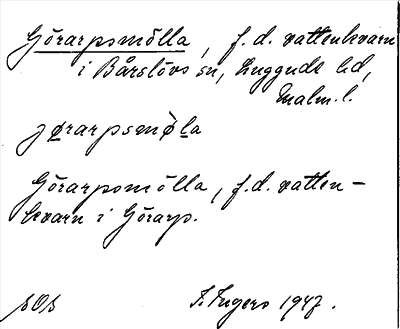 Görarpsmölla, f.d. vattenkvarn
i Bårslövs sn, Luggude hd,
Malm. l.
jørarpsmø̀la
Görarpsmölla, f.d. vatten-
kvarn i Görarp.
SOS F. Ingers 1947.